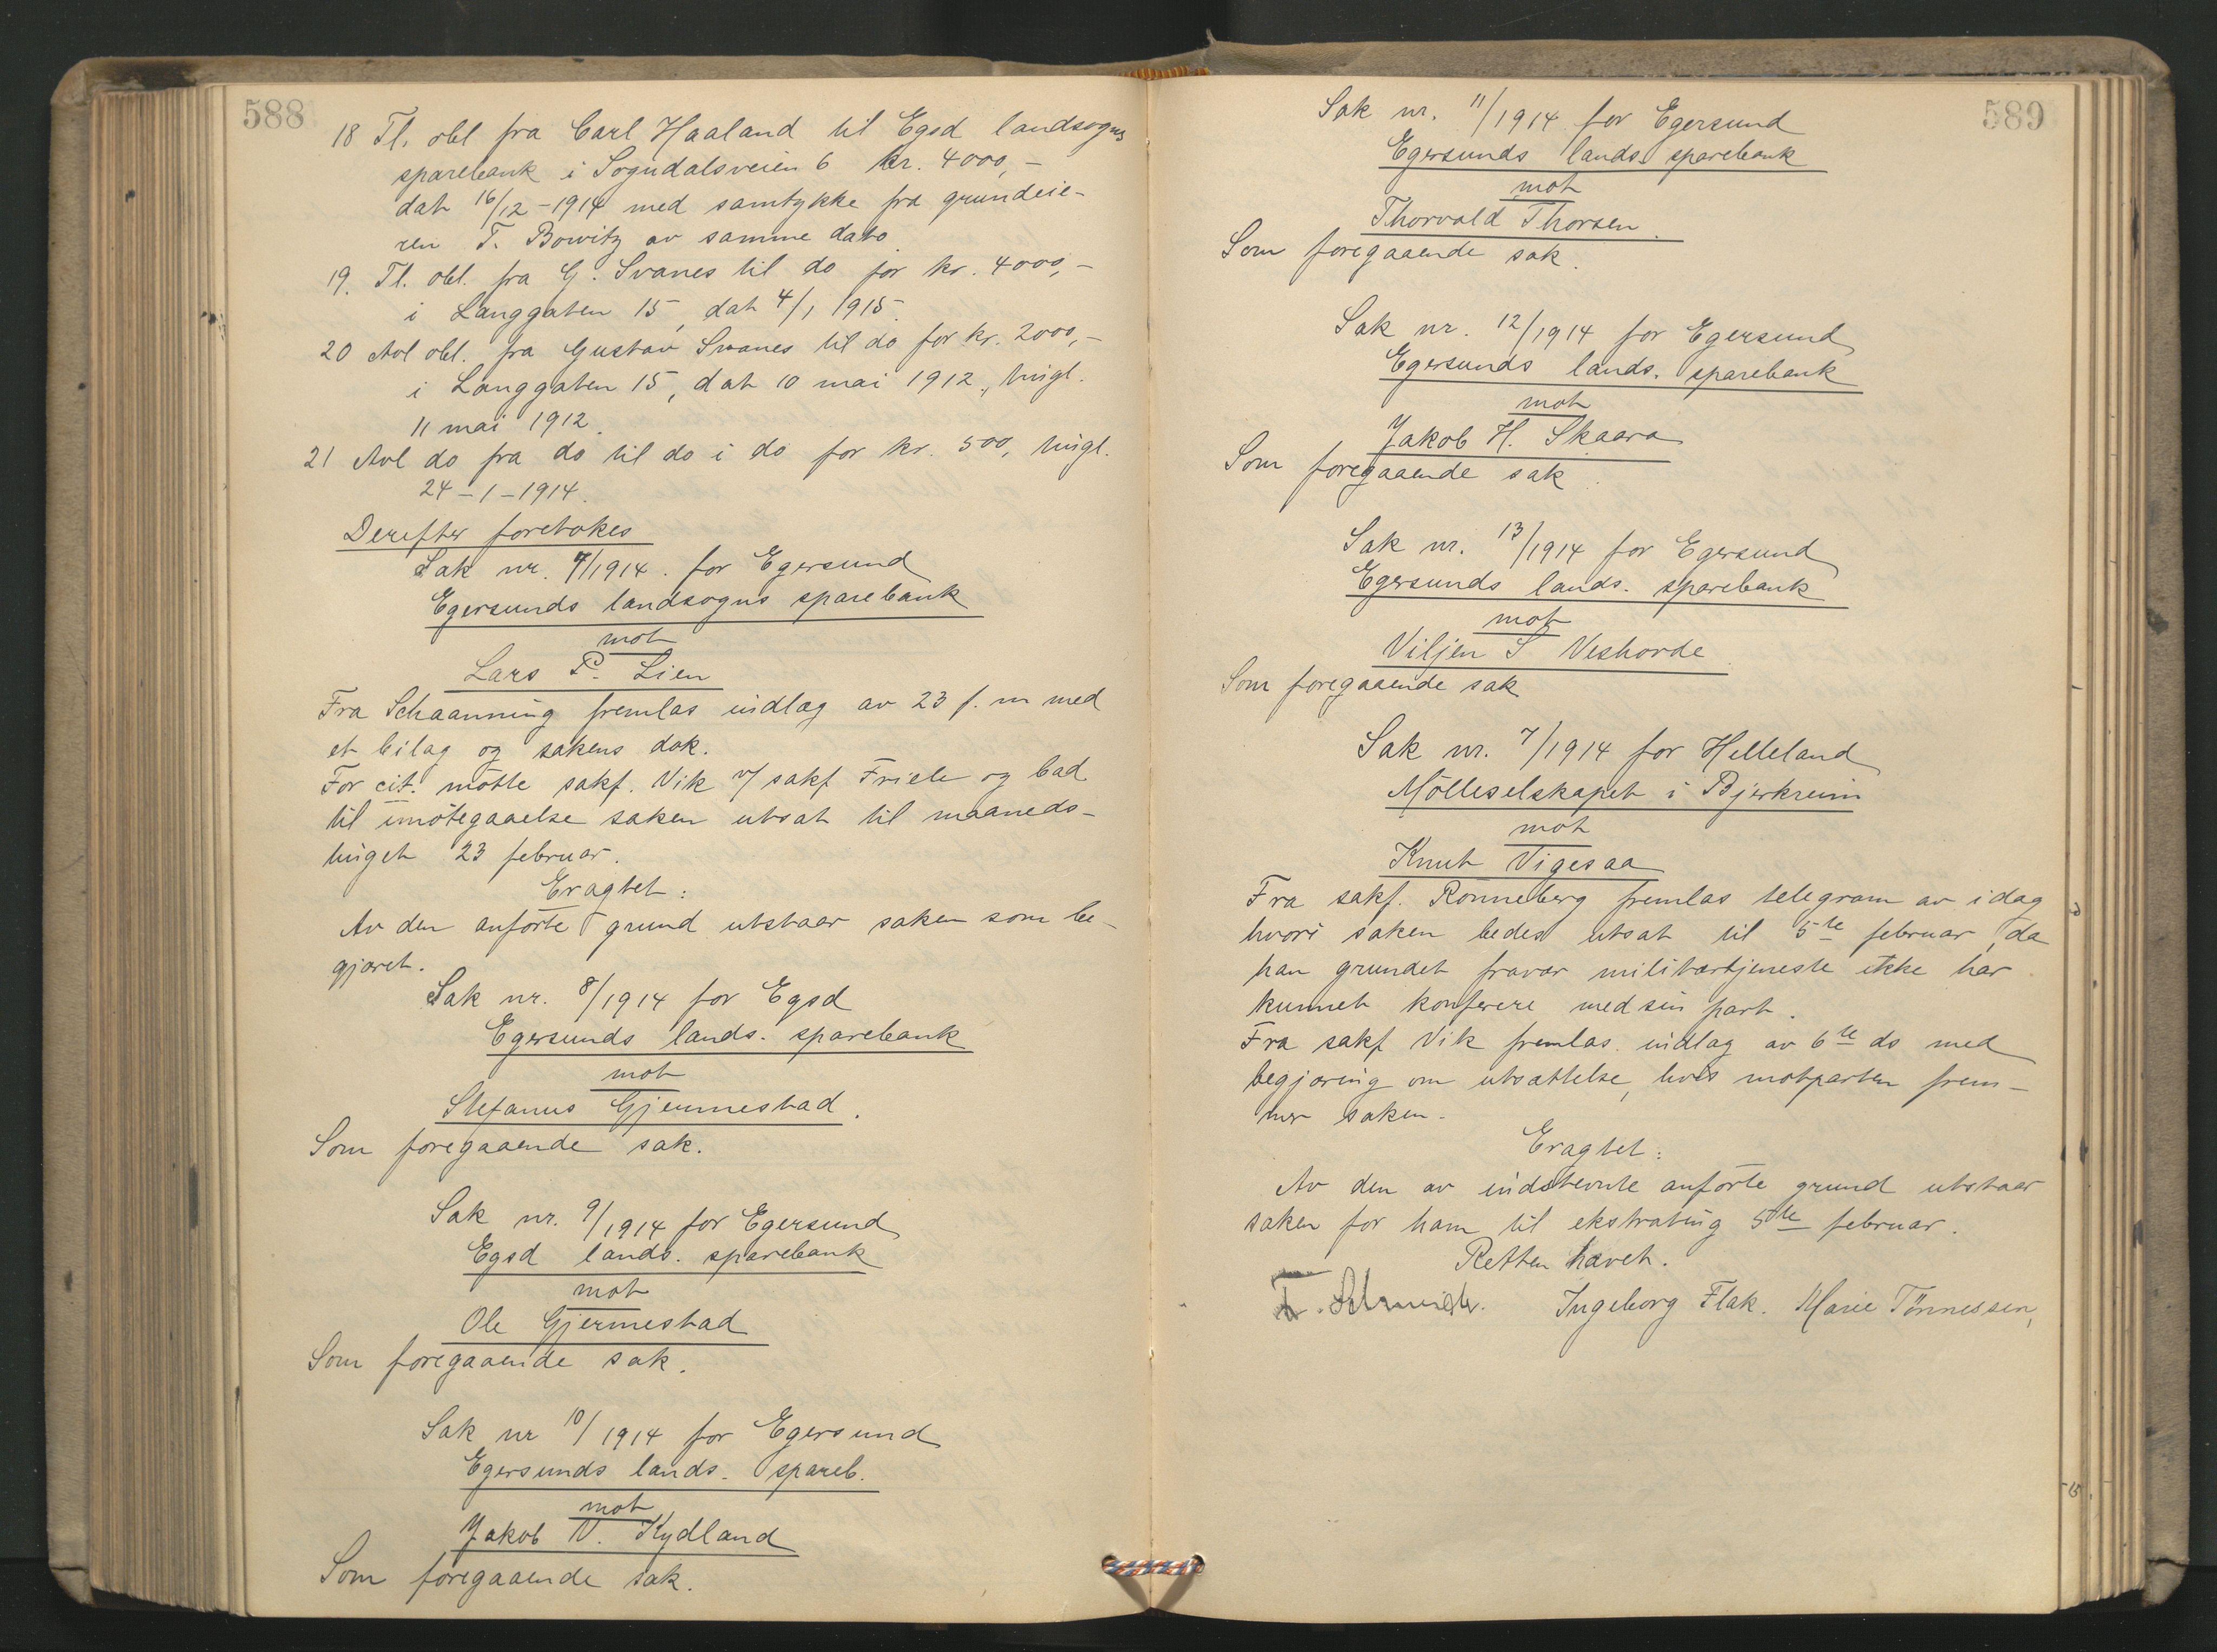 588
18 Tl. obl fra Carl Haaland til Egsd landsogns
sparebank i Sogndalsveien 6 kr. 4000,-
dat 16/12-1914 med samtykke fra grundeie-
ren T. Bowitz av samme dato.
19. Tl. obl. fra G. Svanes til do for kr. 4000,-
i Langgaten 15, dat 4/1 1915.
20 Avl obl. fra Gustav Svanes til do for kr. 2000,-
i Langgaten 15, dat 10 mai 1912, tingl.
11 mai 1912.
21 Avl do fra do til do i do for kr. 500, tingl.
24-1-1914.
Derefter foretokes
Sak nr. 7/1914. for Egersund
Egersunds landsogns sparebank
mot
Lars P. Lien
Fra Schaanning fremlas indlæg av 23 f. m med
et bilag og sakens dok.
For cit. møtte sakf. Vik v/ sakf Friele og bad
til imøtegaaelse saken utsat til maaneds-
tinget 23 februar.
Eragtet:
Av den anførte grund utstaar saken som be-
gjæret.
Sak nr. 8/1914 for Egsd
Egersunds lands. sparebank
mot
Stefanus Gjermestad.
Som foregaaende sak.
Sak nr. 9/1914 for Egersund
Egsd lands. sparebank
mot
Ole Gjermestad
Som foregaaende sak.
Sak nr 10/1914 for Egersund
Egersunds lands. spareb.
mot
Jakob N. Kydland
Som foregaaende sak.
589
Sak nr. 11/1914 for Egersund
Egersunds lands. sparebank
mot
Thorvald Thorsen.
Som foregaaende sak.
Sak nr. 12/1914 for Egersund
Egersunds lands. sparebank
mot
Jakob H. Skaara
Som foregaaende sak.
Sak nr. 13/1914 for Egersund
Egersunds lands. sparebank
mot
Viljen S Veshovde
Som foregaaende sak
Sak nr. 7/1914 for Helleland
Mølleselskapet i Bjerkreim
mot
Knut Vigesaa
Fra sakf. Rønneberg fremlas telegram av idag
hvori saken bedes utsat til 5te februar, da
han grundet fravær militærtjeneste ikke har
kunnet konferere med sin part.
Fra sakf Vik fremlas indlæg av 6te ds med
begjæring om utsættelse, hvis motparten frem-
mer saken.
Eragtet:
Av den av indstevnte anførte grund utstaar
saken for ham til ekstrating 5te februar.
Retten hævet.
Ingeborg Flak. Marie Tønnessen,